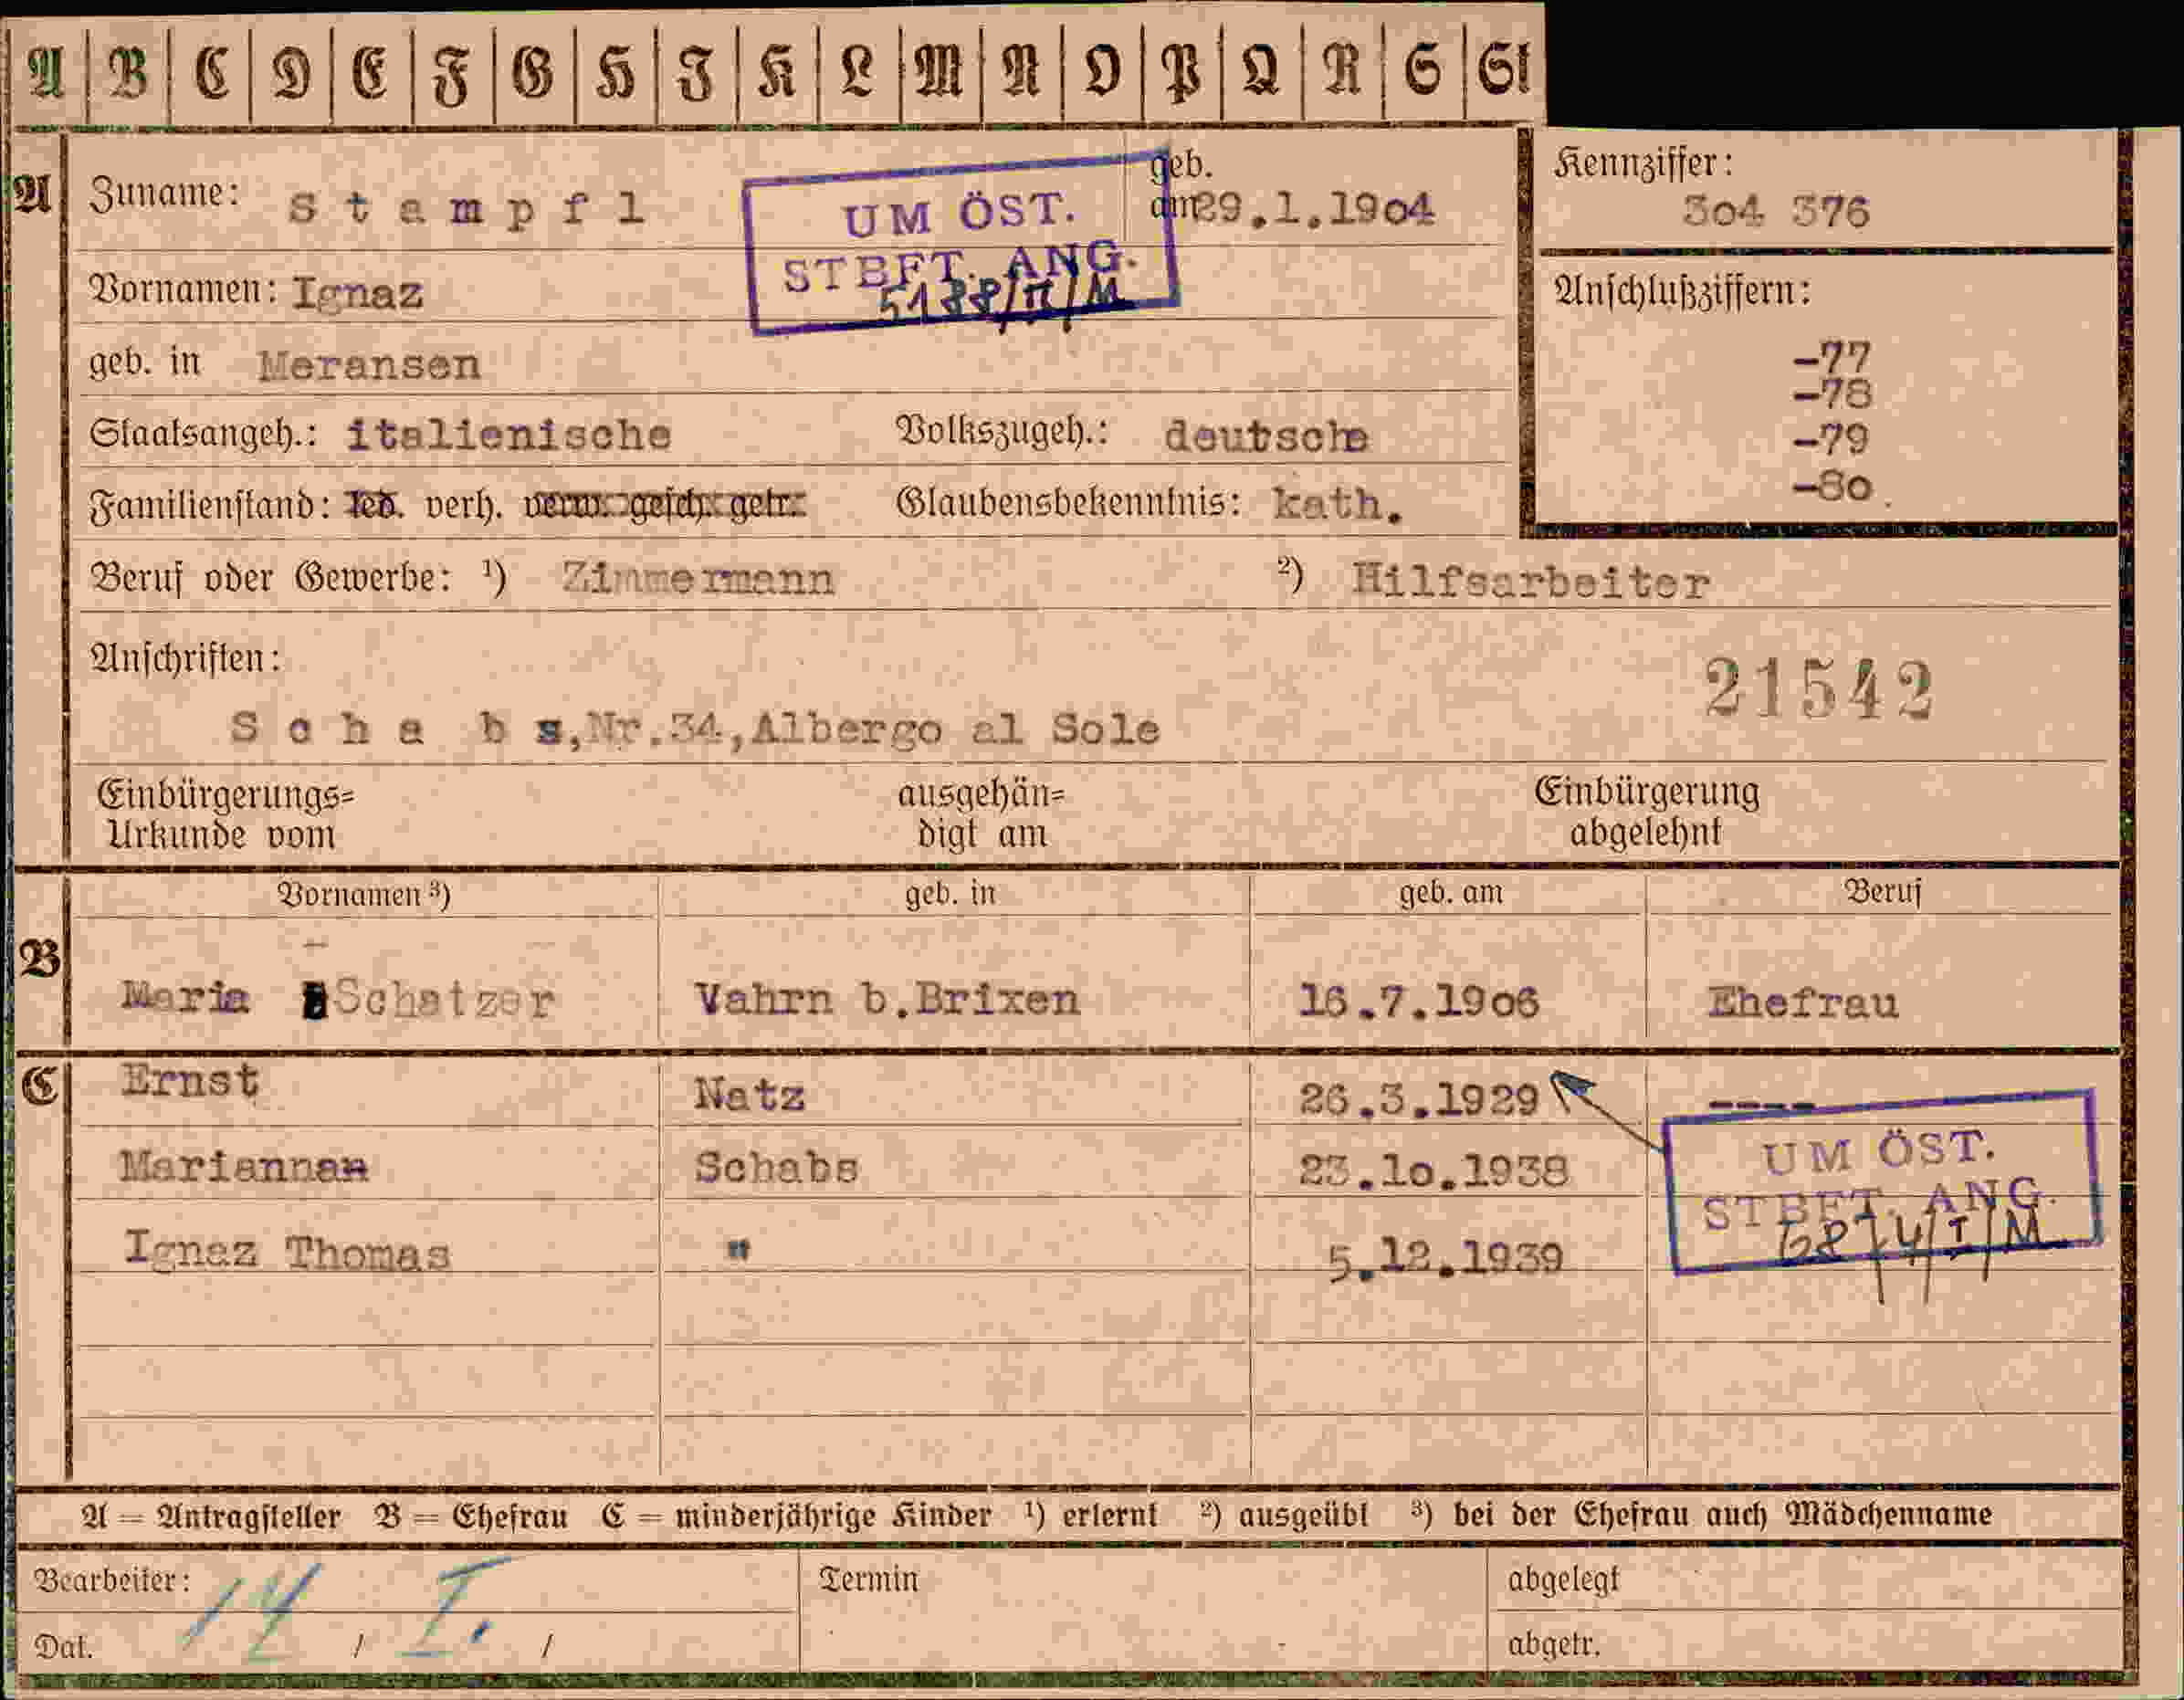 A B C D E F G H J K L M N O P Q R S St
A Zuname: S t a m p f l geb. am 29.1.1904
UM ÖST.
STBFT. ANG.
5188/II/M
Kennziffer:
304 376
Vornamen: Ignaz
Anschlußziffern:
-77
-78
-79
-80
geb. in Meransen
Staatsangeh.: italienische Volkszugeh.: deutsche
Familienstand: led. verh. verw. gesch. getr. Glaubensbekenntnis: kath.
Beruf oder Gewerbe: ¹) Zimmermann ²) Hilfsarbeiter
Anschriften:
21542
S c h a b s,Nr.34,Albergo al Sole
Einbürgerungs= ausgehän= Einbürgerung
Urkunde vom digt am abgelehnt
Vornamen ³) geb. in geb. am Beruf
B Maria Schatzer Vahrn b.Brixen 16.7.1906 Ehefrau
C Ernst Natz 26.3.1929 ----
Mariannan Schabs 23.10.1938
Ignaz Thomas " 5.12.1939
UM ÖST.
STBFT. ANG.
A = Antragsteller B = Ehefrau C = minderjährige Kinder ¹) erlernt ²) ausgeübt ³) bei der Ehefrau auch Mädchenname
Bearbeiter: Termin abgelegt
Dat. 14 / I. / abgetr.